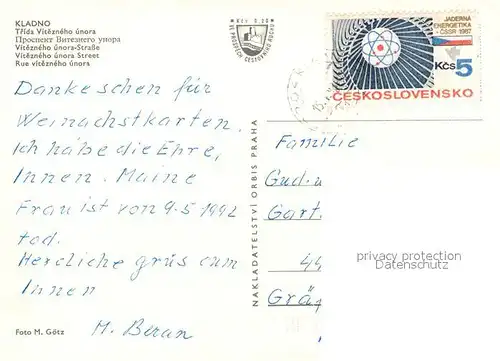 KLADNO
Třída Vítězného února
Проспект Витезнего унора
Vítězného února-Straße
Vítězného února Street
Rue vítězného února
Kčs 0,50
VE PROSPĚCH CESTOVNÍHO RUCHU
JADERNÁ
ENERGETIKA
- ČSSR 1987
Kčs 5
ČESKOSLOVENSKO
Danke schen für
Weinachstkarten.
Ich habe die Ehre,
Innen. Maine
Frau ist von 9.5 1992
tod.
Hercliche grüs cum
Innen
M. Beran
Foto M. Götz
NAKLADATELSTVÍ ORBIS PRAHA
Familie
Gud.
Gart.
44
Grä
privacy protection
Datenschutz